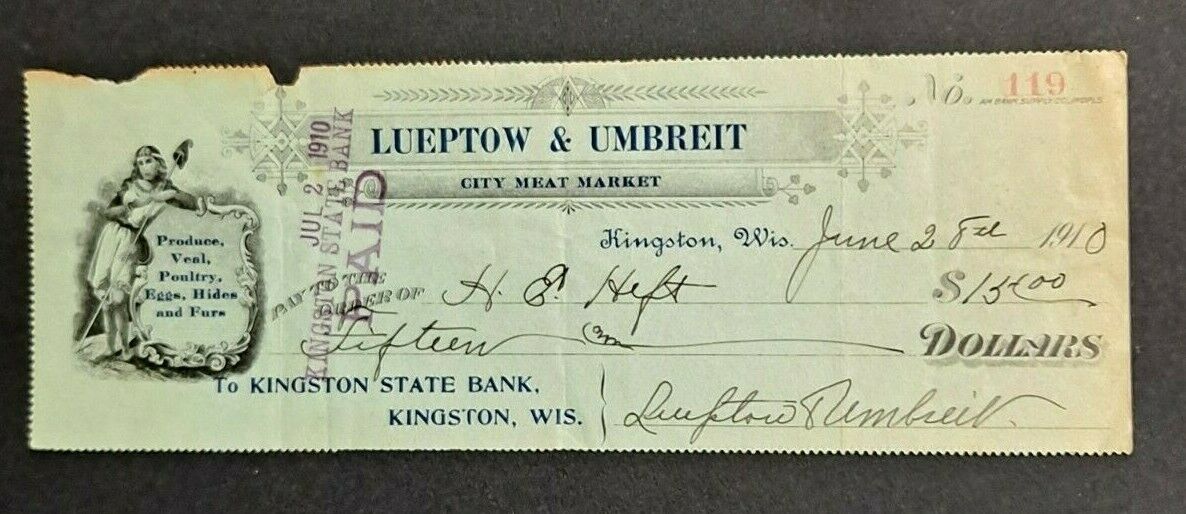 No. 119
AM. BANK SUPPLY CO. UMDPLS.
LUEPTOW & UMBREIT
CITY MEAT MARKET
Produce,
Veal,
Poultry,
Eggs, Hides
and Furs
JUL 2 1910
KINGSTON STATE BANK
PAID
Kingston, Wis. June 28th 1910
PAY TO THE
ORDER OF H. E. Heft $15.00
Fifteen DOLLARS
To KINGSTON STATE BANK,
KINGSTON, WIS.
Lueptow & Umbreit